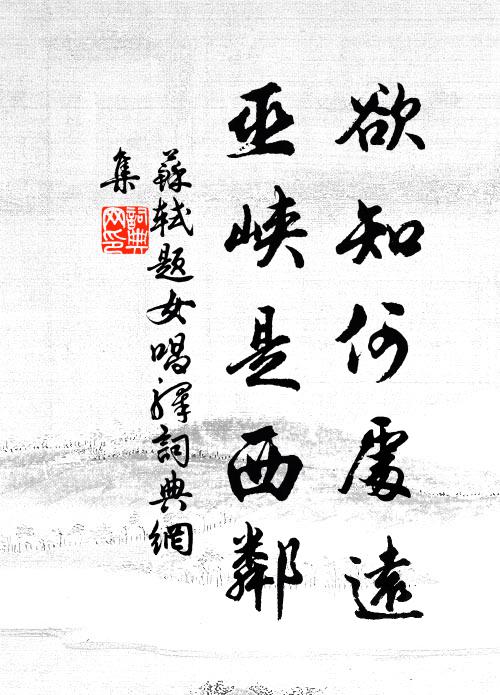 欲知何處遠
巫峽是西鄰
蘇軾題女唱驛詞典網
集
詞典網印